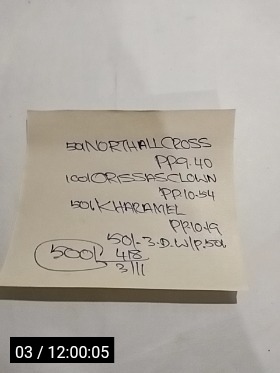 50/NORTHALLCROSS
PP9.40
100/ORISSASCLOWN
PP.10.54
50/KHARAMEL
PP.10.19
50/-3.D.W/P.50/
4/8
500/ 3/11
03 / 12:00:05